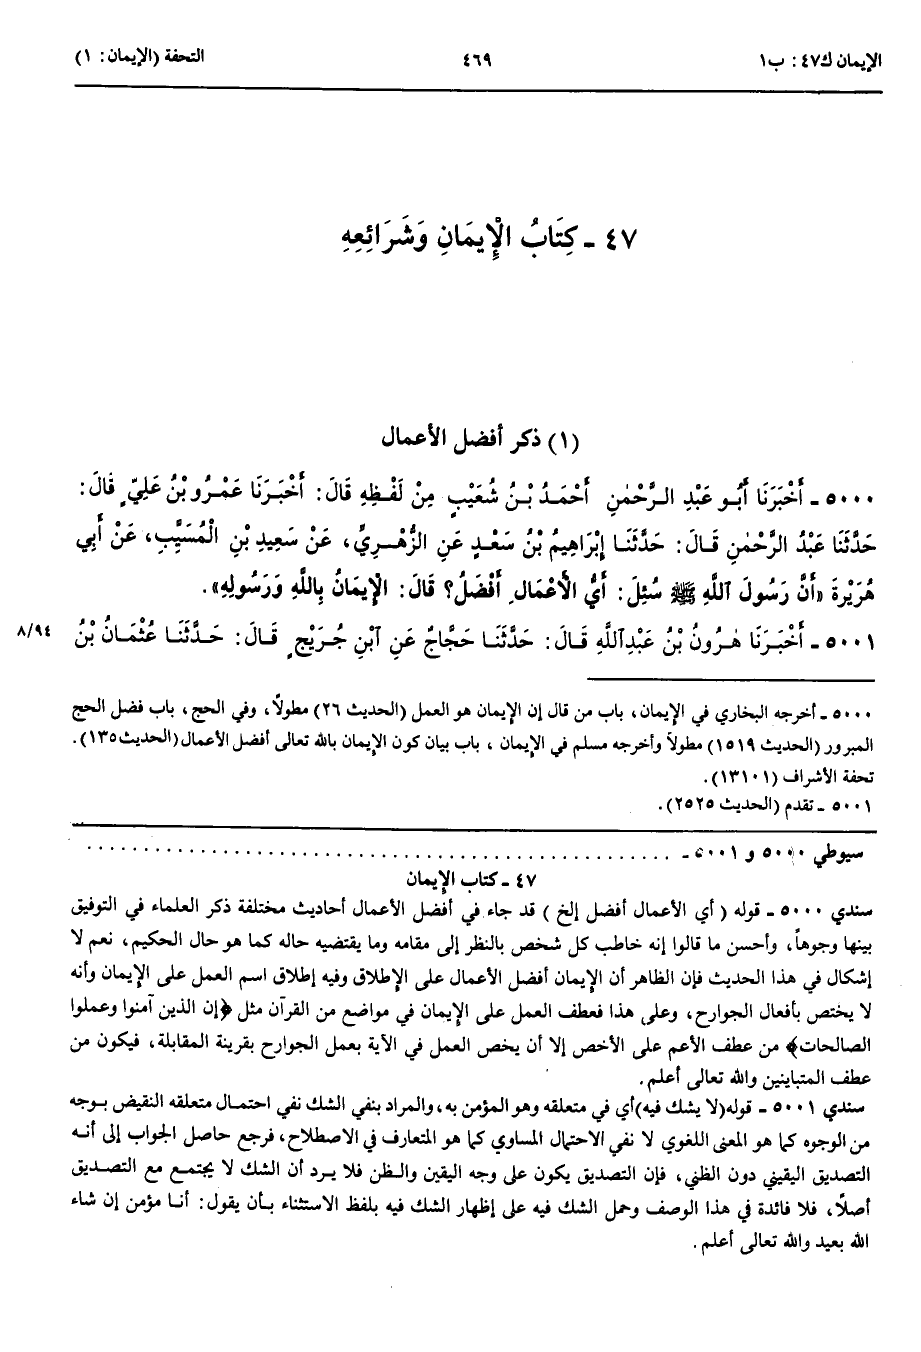 الإيمان ك٤٧: ب١
٤٦٩
التحفة (الإيمان: ١)
٤٧ - كِتَابُ الْإِيمَانِ وَشَرَائِعِهِ
(١) ذكر أفضل الأعمال
٥٠٠٠ - أَخْبَرَنَا أَبُو عَبْدِ الرَّحْمٰنِ أَحْمَدُ بْنُ شُعَيْبٍ مِنْ لَفْظِهِ قَالَ: أَخْبَرَنَا عَمْرُو بْنُ عَلِيٍّ قَالَ:
حَدَّثَنَا عَبْدُ الرَّحْمٰنِ قَالَ: حَدَّثَنَا إِبْرَاهِيمُ بْنُ سَعْدٍ عَنِ الزُّهْرِيِّ، عَنْ سَعِيدِ بْنِ الْمُسَيَّبِ، عَنْ أَبِي
هُرَيْرَةَ «أَنَّ رَسُولَ اللَّهِ ﷺ سُئِلَ: أَيُّ الْأَعْمَالِ أَفْضَلُ؟ قَالَ: الْإِيمَانُ بِاللَّهِ وَرَسُولِهِ».
٥٠٠١ - أَخْبَرَنَا هٰرُونُ بْنُ عَبْدِاللَّهِ قَالَ: حَدَّثَنَا حَجَّاجٌ عَنِ ابْنِ جُرَيْجٍ قَالَ: حَدَّثَنَا عُثْمَانُ بْنُ
٨/٩٤
٥٠٠٠ - أخرجه البخاري في الإيمان، باب من قال إن الإيمان هو العمل (الحديث ٢٦) مطولاً، وفي الحج، باب فضل الحج
المبرور (الحديث ١٥١٩) مطولاً وأخرجه مسلم في الإيمان، باب بيان كون الإيمان بالله تعالى أفضل الأعمال (الحديث ١٣٥).
تحفة الأشراف (١٣١٠١).
٥٠٠١ - تقدم (الحديث ٢٥٢٥).
سيوطي ٥٠٠٠ و ٥٠٠١ - ................................................
٤٧ - كتاب الإيمان
سندي ٥٠٠٠ - قوله (أي الأعمال أفضل إلخ) قد جاء في أفضل الأعمال أحاديث مختلفة ذكر العلماء في التوفيق
بينها وجوهاً، وأحسن ما قالوا إنه خاطب كل شخص بالنظر إلى مقامه وما يقتضيه حاله كما هو حال الحكيم، نعم لا
إشكال في هذا الحديث فإن الظاهر أن الإيمان أفضل الأعمال على الإطلاق وفيه إطلاق اسم العمل على الإيمان وأنه
لا يختص بأفعال الجوارح، وعلى هذا فعطف العمل على الإيمان في مواضع من القرآن مثل ﴿إن الذين آمنوا وعملوا
الصالحات﴾ من عطف الأعم على الأخص إلا أن يخص العمل في الآية بعمل الجوارح بقرينة المقابلة، فيكون من
عطف المتباينين والله تعالى أعلم.
سندي ٥٠٠١ - قوله (لا يشك فيه) أي في متعلقه وهو المؤمن به، والمراد بنفي الشك نفي احتمال متعلقه النقيض بوجه
من الوجوه كما هو المعنى اللغوي لا نفي الاحتمال المساوي كما هو المتعارف في الاصطلاح، فرجع حاصل الجواب إلى أنه
التصديق اليقيني دون الظني، فإن التصديق يكون على وجه اليقين والظن فلا يرد أن الشك لا يجتمع مع التصديق
أصلاً، فلا فائدة في هذا الوصف وحمل الشك فيه على إظهار الشك فيه بلفظ الاستثناء بأن يقول: أنا مؤمن إن شاء
الله بعيد والله تعالى أعلم.